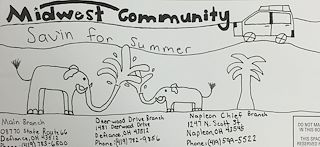 Midwest Community
Savin for Summer
Main Branch
08770 State Route 66
Defiance, OH 43512
Phone (419) 783-6500
Deerwood Drive Branch
1481 Deerwood Drive
Defiance, OH 43512
Phone (419) 782-9856
Napoleon Chief Branch
1247 N. Scott St.
Napoleon, OH 43545
Phone (419) 599-5522
DO NOT MA
IN THIS BO
THIS SPAC